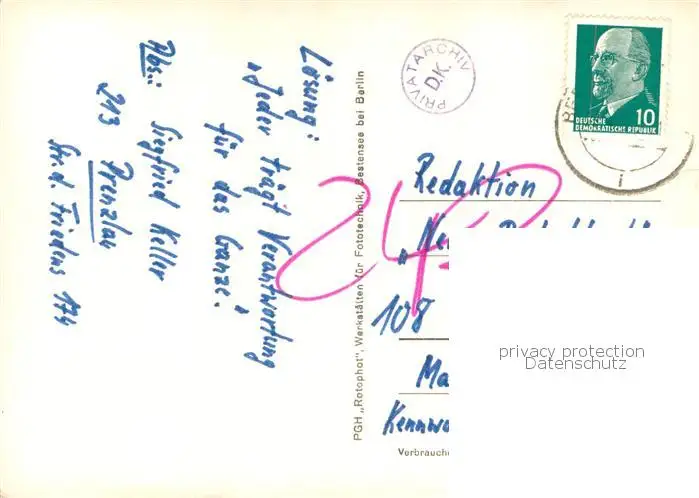 Lösung:
„Jeder trägt Verantwortung
für das Ganze!
Abs.: Siegfried Keller
213 Prenzlau
Str. d. Friedens 174
PGH „Rotophot", Werkstätten für Fototechnik, Bestensee bei Berlin
PRIVATARCHIV
D.K.
10
DEUTSCHE
DEMOKRATISCHE REPUBLIK
Redaktion
108
privacy protection
Datenschutz